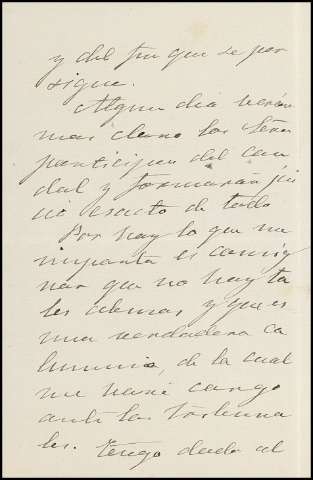 y del fin que se per
sigue.
Algun dia verán
mas claro los Sres
participes del cau
dal y formarán jui
cio esacto de todo
Por hoy lo que me
importa es consig
nar que no hay ta
les alemas y que es
una verdadera ca
lumnia, de la cual
me haré cargo
ante los tribuna
les. Tengo dada al